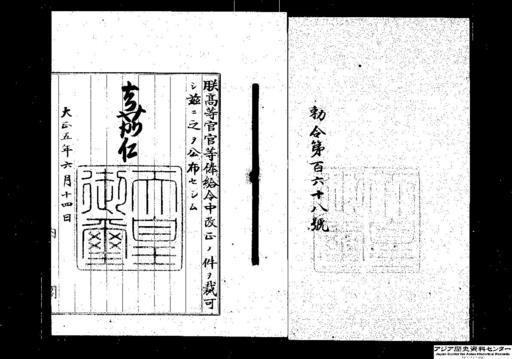 勅令第百六十八號
朕高等官官等俸給令中改正ノ件ヲ裁可
シ茲ニ之ヲ公布セシム
嘉仁
天皇
御璽
大正五年六月十四日
内
閣
アジア歴史資料センター
Japan Center for Asian Historical Records